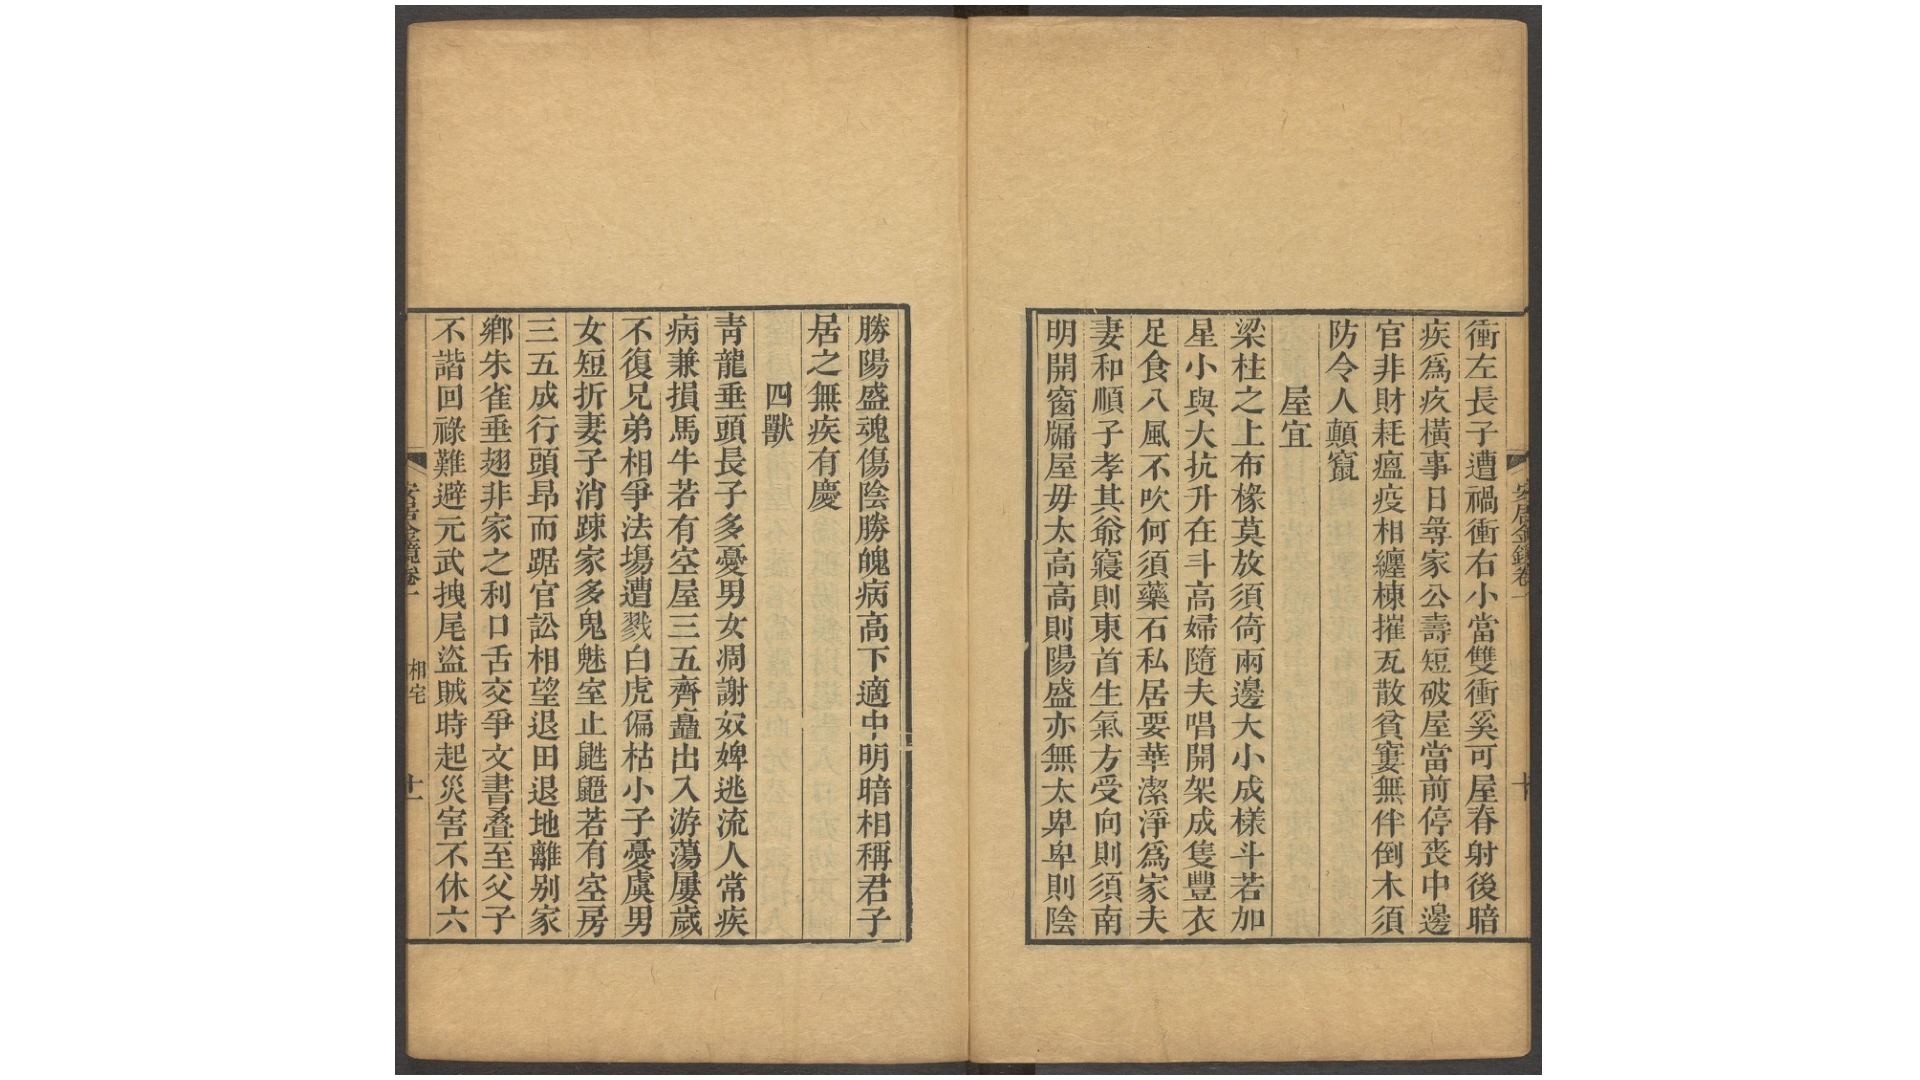 衝左長子遭禍衝右小當雙衝奚可屋脊射後暗
疾爲疚橫事日尋家公壽短破屋當前停喪中邊
官非財耗瘟疫相纏棟摧瓦散貧窶無伴倒木須
防令人顛竄
屋宜
梁柱之上布椽莫放須倚兩邊大小成樣斗若加
星小與大抗升在斗高婦隨夫唱開架成隻豐衣
足食八風不吹何須藥石私居要華潔淨爲家夫
妻和順子孝其爺寢則東首生氣方受向則須南
明開窗牖屋毋太高高則陽盛亦無太卑卑則陰
安居金鏡卷一
十
勝陽盛魂傷陰勝魄病高下適中明暗相稱君子
居之無疾有慶
四獸
靑龍垂頭長子多憂男女凋謝奴婢逃流人常疾
病兼損馬牛若有空屋三五齊矗出入游蕩屢歲
不復兄弟相爭法場遭戮白虎偏枯小子憂虞男
女短折妻子消踈家多鬼魅室止鼪鼯若有空房
三五成行頭昂而踞官訟相望退田退地離別家
鄕朱雀垂翅非家之利口舌交爭文書叠至父子
不諧回祿難避元武拽尾盜賊時起災害不休六
安居金鏡卷一
相宅
十一